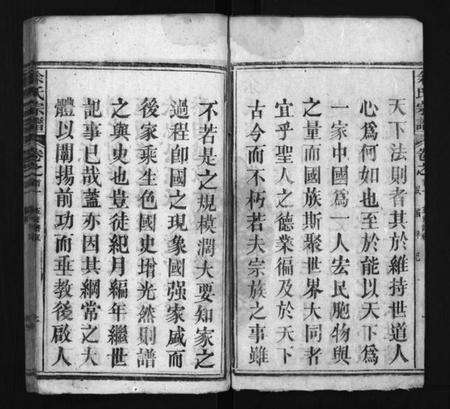 天下法則者其於維持世道人
心爲何如也至於能以天下爲
一家中國爲一人宏民胞物與
之量而國族斯聚世界大同者
宜乎聖人之德業徧及於天下
古今而不朽若夫宗族之事雖
不若是之規模濶大要知家之
過程卽國之現象國强家盛而
後家乘生色國史增光然則譜
之與史也豈徒紀月編年繼世
記事已哉蓋亦因其綱常之大
體以闡揚前功而垂教後啟人
余氏宗譜